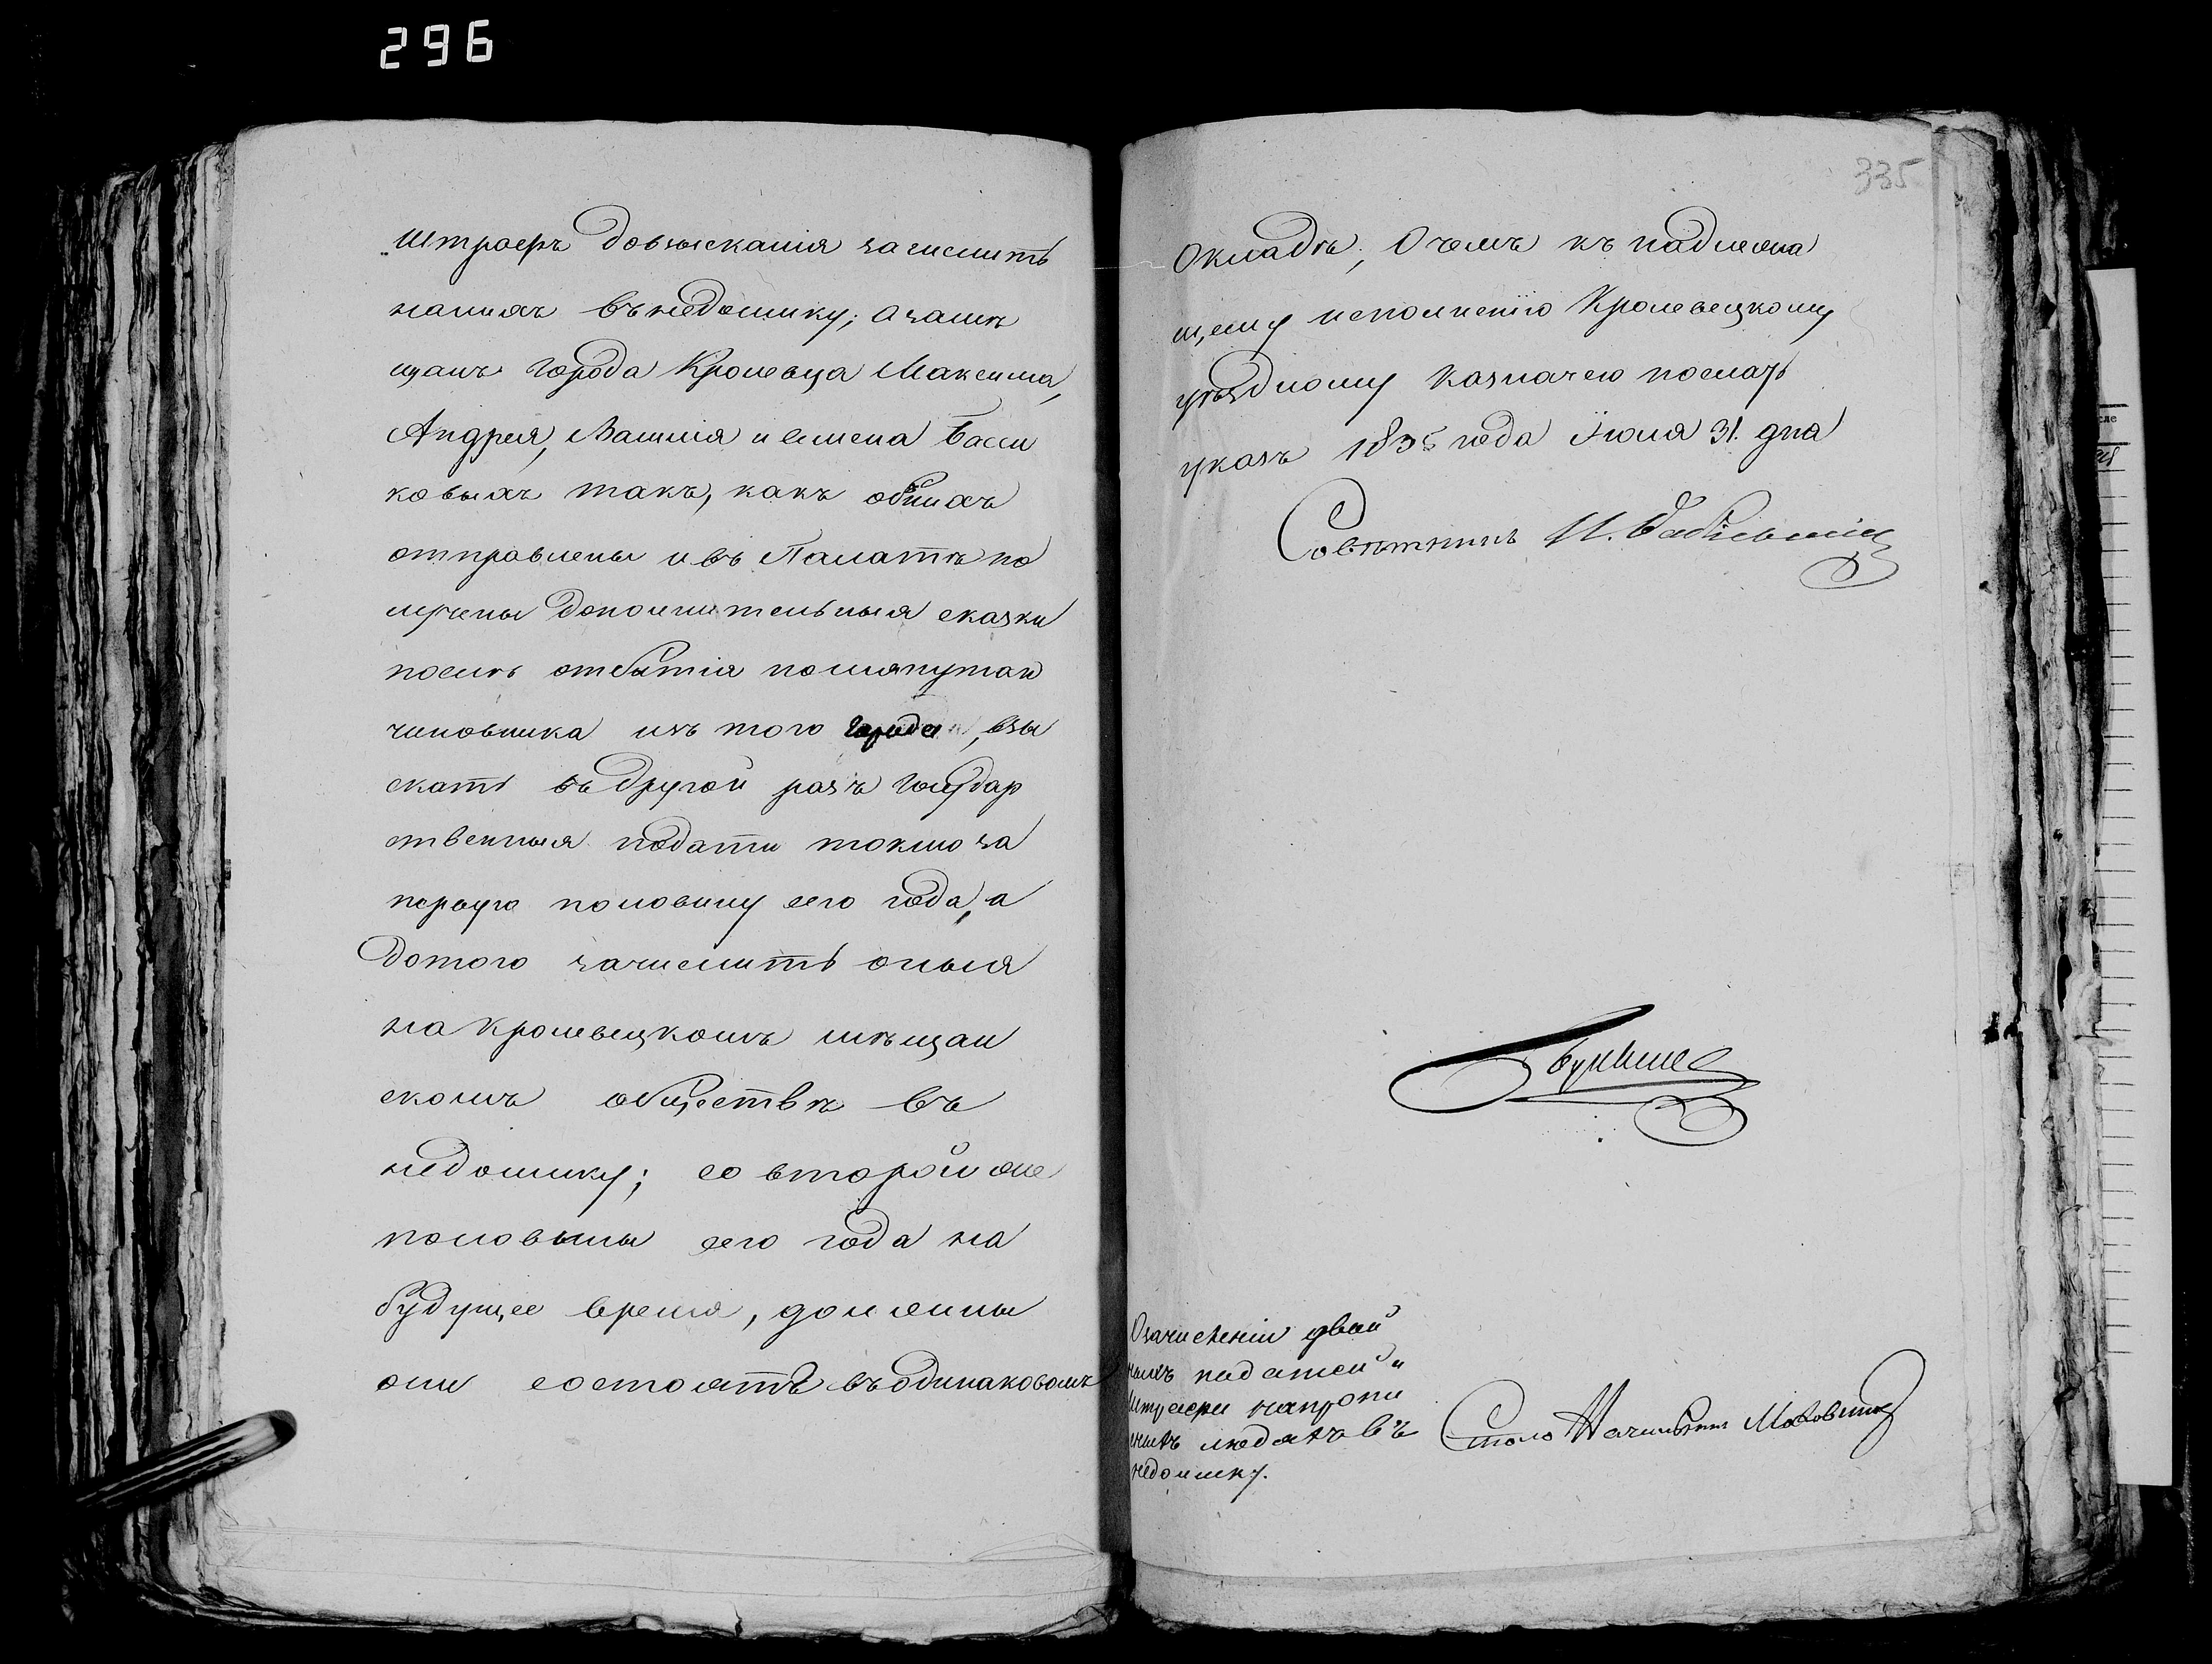 296
335
штрафъ довзысканія зачислить
нанихъ въ недоимку; а замѣ
щанъ города Кролевца Максима,
Андрея, Василія и Семена Басси
ковыхъ такъ, какъ обнихъ
отправлены и въ Палатѣ по
лучены дополнительныя сказки
послѣ отбытія помянутаго
чиновника изъ того города, взы
скать въ другой разъ Государ
ственныя подати токмо за
первую половину сего года, а
дотого зачислить оныя
на Кролевецкомъ мѣщан
скомъ обществѣ въ
недоимку; со второй же
половины сего года на
будущее время, должны
они состоять въ одинаковомъ
Окладѣ; О чемъ къ надлежа
щему исполненію Кролевецкому
уѣздному Казначею послать
указъ 1835 года Іюля 31. дня
Совѣтникъ И.
Озачисленіи двой
ныхъ податей и
штрафа напропи
сныхъ людяхъ въ
недоимку.
Столо Начальникъ